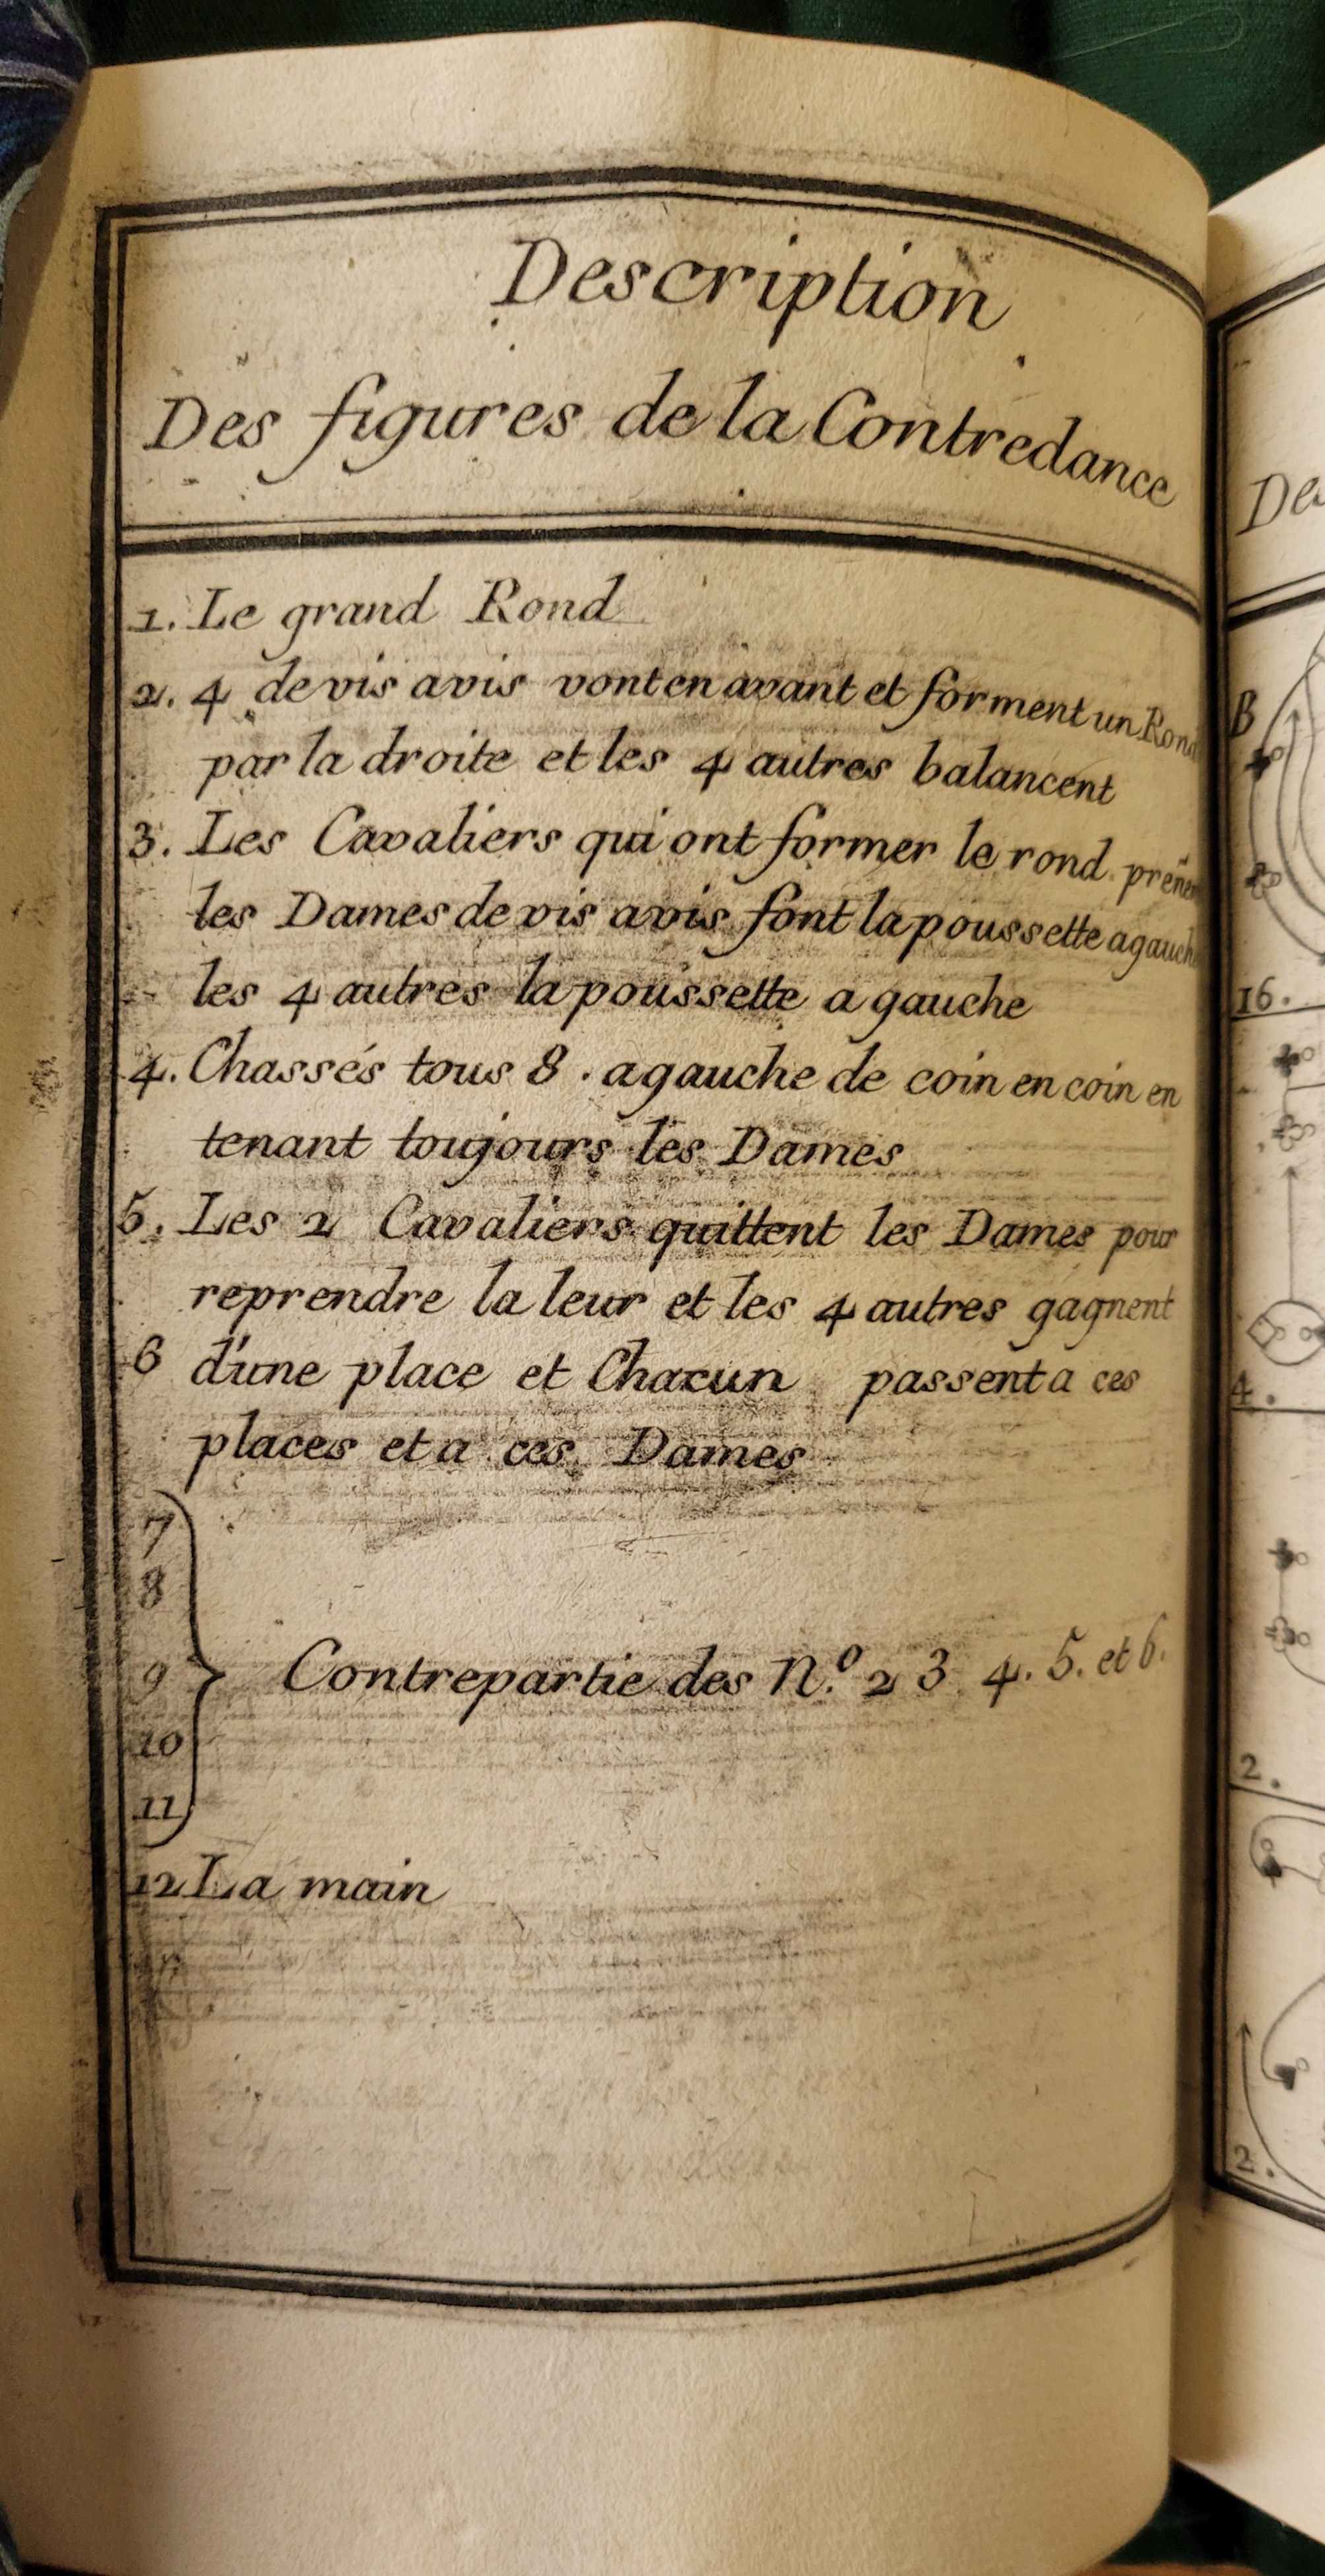 Description
Des figures de la Contredance
1. Le grand Rond
2. 4 de vis avis vont en avant et forment un Rond
par la droite et les 4 autres balancent
3. Les Cavaliers qui ont former le rond
les Dames de vis avis font la poussette a gauche
les 4 autres la poussette a gauche
4. Chassés tous 8. a gauche de coin en coin en
tenant toujours les Dames
5. Les 2 Cavaliers quittent les Dames pour
reprendre la leur et les 4 autres gagnent
6 d'une place et Chacun passent a ces
places et a ces Dames
7
8
9 Contrepartie des N.º 2 3 4. 5. et 6.
10
11
12 La main
B
16.
4.
2.
2.